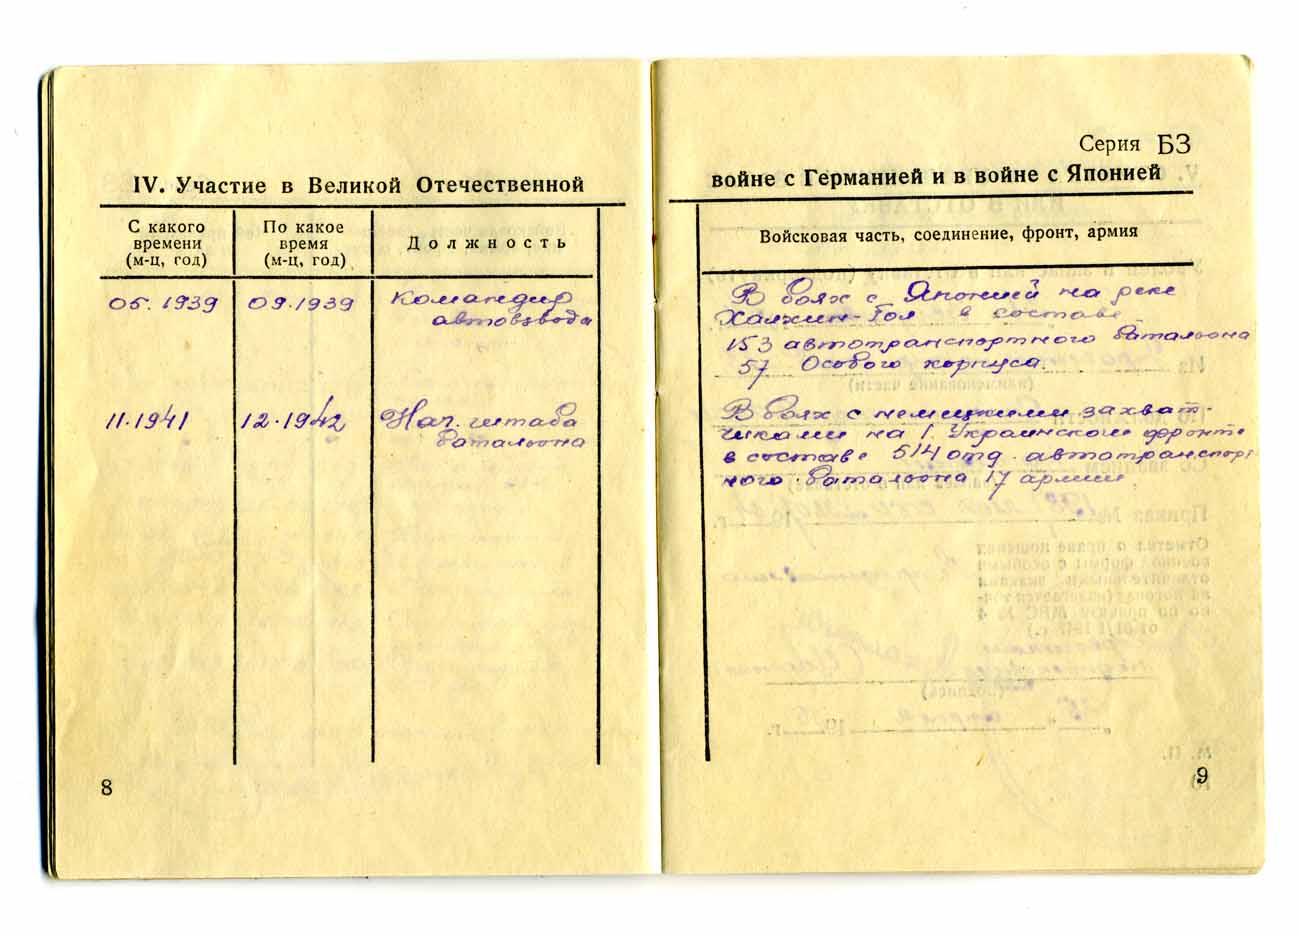 IV. Участие в Великой Отечественной
С какого
времени
(м-ц, год)
По какое
время
(м-ц, год)
Должность
05. 1939
09.1939
Командир
автовзвода
11.1941
12.1942
Нач. штаба
батальона
8
Серия БЗ
войне с Германией и в войне с Японией
Войсковая часть, соединение, фронт, армия
В боях с Японией на реке
Халхин-Гол в составе
153 автотранспортного батальона
57 Особого корпуса.
В боях с немецкими захват-
чиками на 1 Украинском фронте
в составе 514 отд. автотранспорт
ного батальона 17 армии
9